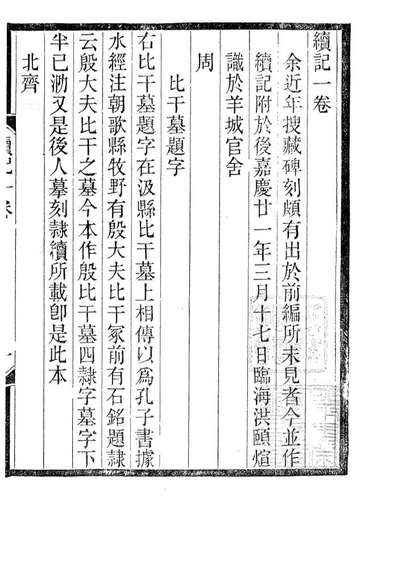 續記一卷
余近年搜藏碑刻頗有出於前編所未見者今並作
續記附於後嘉慶廿一年三月十七日臨海洪頤煊
識於羊城官舍
周
比干墓題字
右比干墓題字在汲縣比干墓上相傳以爲孔子書據
水經注朝歌縣牧野有殷大夫比干冢前有石銘題隷
云殷大夫比干之墓今本作殷比干墓四隷字墓字下
半已泐又是後人摹刻隷續所載卽是此本
北齊